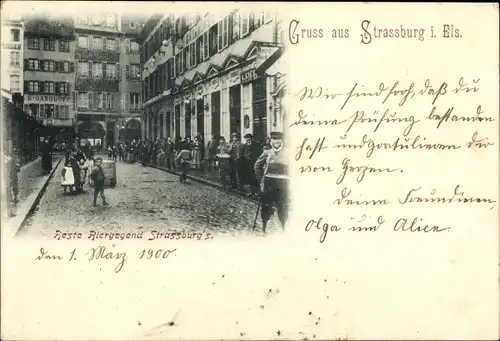 Gruss aus Strassburg i. Els.
Wir sind froh, daß du
deine Prüfung bestanden
hast und gratulieren dir
von Herzen.
deine Freundinnen,
Olga und Alice.
Beste Biergegend Strassburg's.
den 1. März 1900